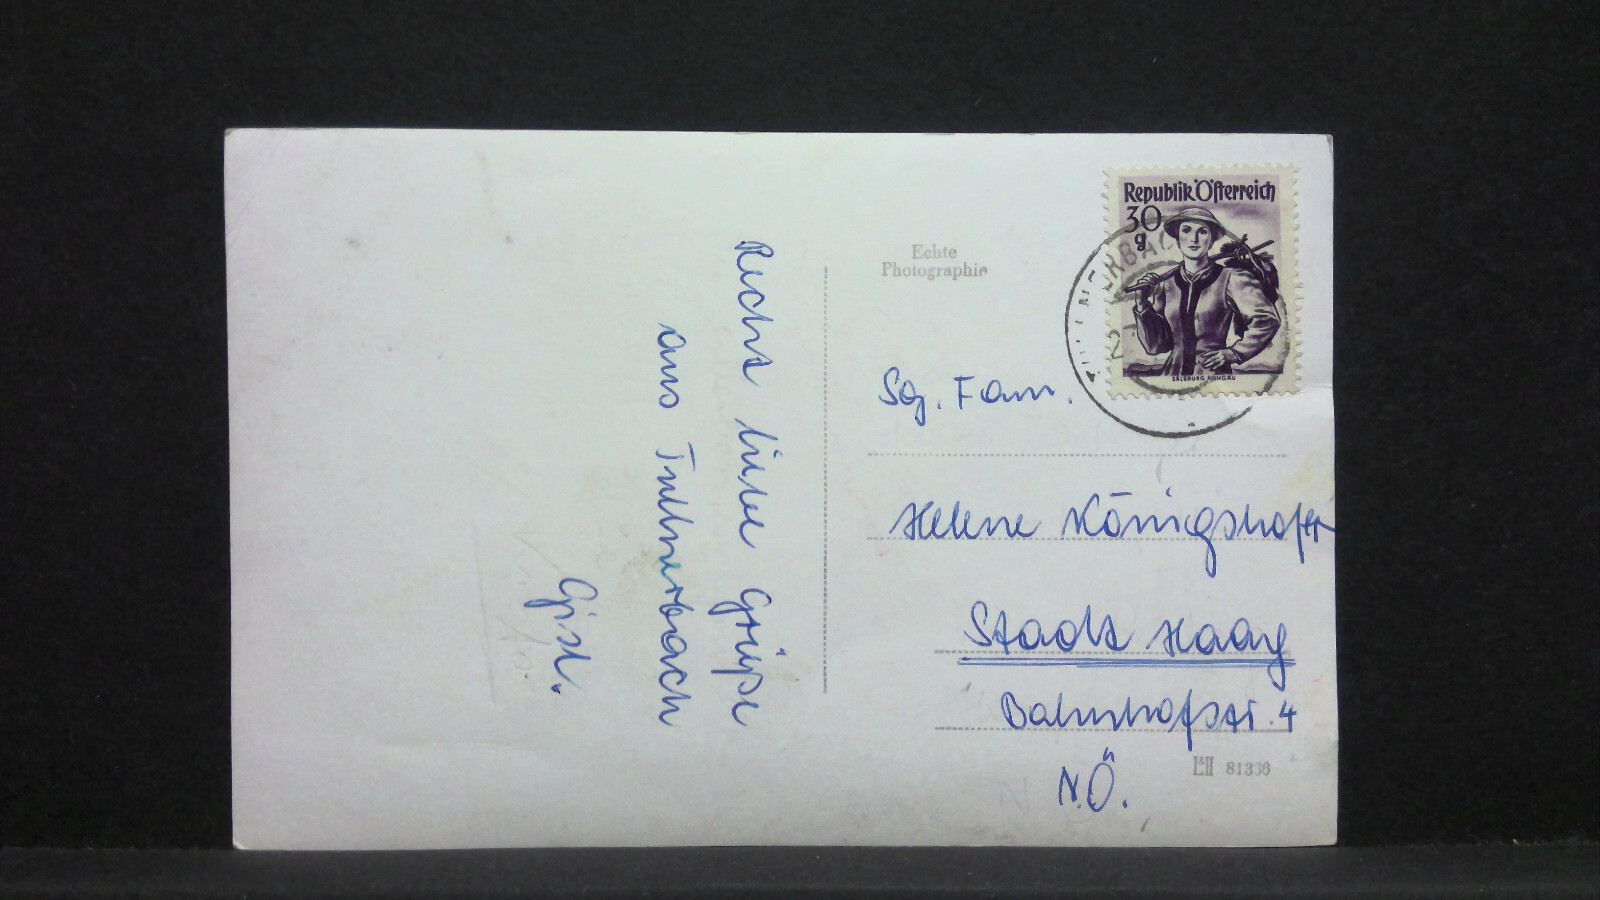 Recht liebe Grüße
aus Tullnerbach
Gisl.
Echte
Photographie
Republik Österreich
30
g
SALZBURG PONGAU
Sg. Fam.
Helene Königshofer
Stadt Haag
Bahnhofstr. 4
N.Ö.
81336